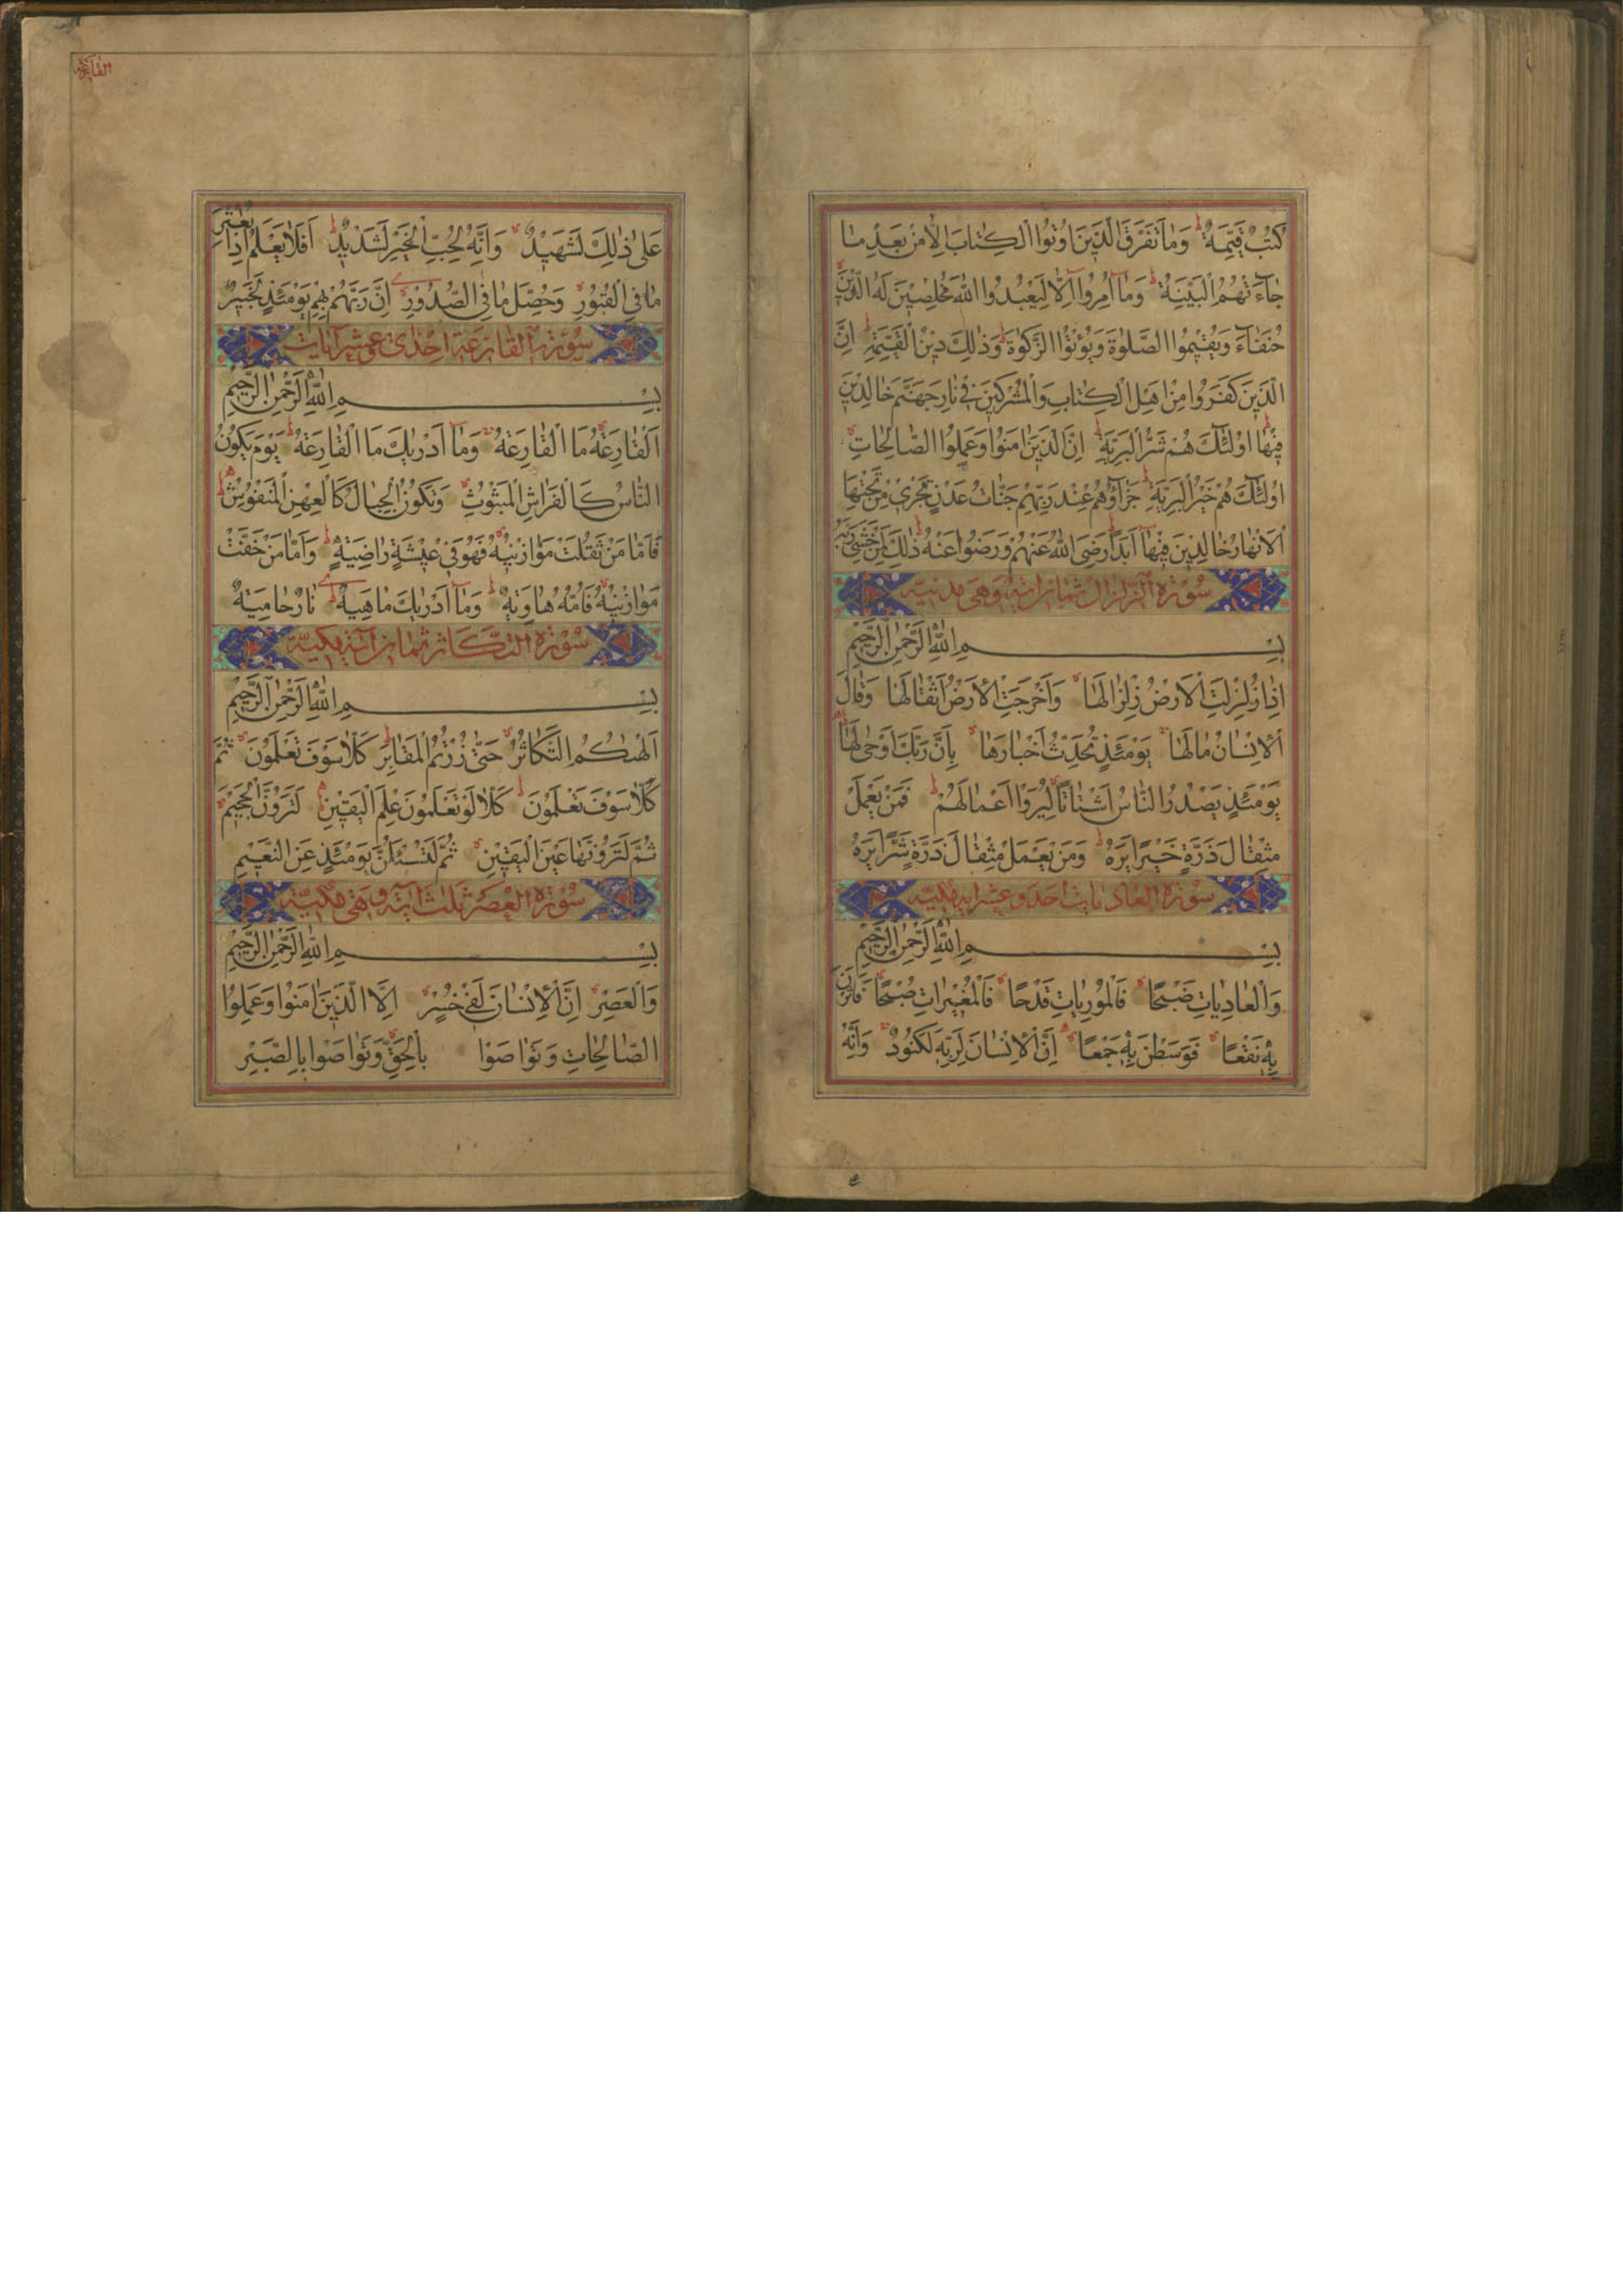 كُتُبٌ قَيِّمَةٌ وَمَا تَفَرَّقَ الَّذِينَ اُوتُوا الْكِتَابَ اِلَّا مِنْ بَعْدِ مَا
جَآءَتْهُمُ الْبَيِّنَةُ وَمَآ اُمِرُوٓا اِلَّا لِيَعْبُدُوا اللّٰهَ مُخْلِصِينَ لَهُ الدِّينَ
حُنَفَآءَ وَيُقِيمُوا الصَّلٰوةَ وَيُؤْتُوا الزَّكٰوةَ وَذٰلِكَ دِينُ الْقَيِّمَةِ اِنَّ
الَّذِينَ كَفَرُوا مِنْ اَهْلِ الْكِتَابِ وَالْمُشْرِكِينَ فِي نَارِ جَهَنَّمَ خَالِدِينَ
فِيهَا اُولٰئِكَ هُمْ شَرُّ الْبَرِيَّةِ اِنَّ الَّذِينَ اٰمَنُوا وَعَمِلُوا الصَّالِحَاتِ
اُولٰئِكَ هُمْ خَيْرُ الْبَرِيَّةِ جَزَآؤُهُمْ عِنْدَ رَبِّهِمْ جَنَّاتُ عَدْنٍ تَجْرِي مِنْ تَحْتِهَا
الْاَنْهَارُ خَالِدِينَ فِيهَآ اَبَدًا رَضِيَ اللّٰهُ عَنْهُمْ وَرَضُوا عَنْهُ ذٰلِكَ لِمَنْ خَشِيَ رَبَّهُ
سُورَةُ الزلزال ثمان اية وهى مدنية
بِسْمِ اللّٰهِ الرَّحْمٰنِ الرَّحِيمِ
اِذَا زُلْزِلَتِ الْاَرْضُ زِلْزَالَهَا وَاَخْرَجَتِ الْاَرْضُ اَثْقَالَهَا وَقَالَ
الْاِنْسَانُ مَالَهَا يَوْمَئِذٍ تُحَدِّثُ اَخْبَارَهَا بِاَنَّ رَبَّكَ اَوْحٰى لَهَا
يَوْمَئِذٍ يَصْدُرُ النَّاسُ اَشْتَاتًا لِيُرَوْا اَعْمَالَهُمْ فَمَنْ يَعْمَلْ
مِثْقَالَ ذَرَّةٍ خَيْرًا يَرَهُ وَمَنْ يَعْمَلْ مِثْقَالَ ذَرَّةٍ شَرًّا يَرَهُ
سورة العاديات احد وعشر اية مكية
بِسْمِ اللّٰهِ الرَّحْمٰنِ الرَّحِيمِ
وَالْعَادِيَاتِ ضَبْحًا فَالْمُورِيَاتِ قَدْحًا فَالْمُغِيرَاتِ صُبْحًا فَاَثَرْنَ
بِهِ نَقْعًا فَوَسَطْنَ بِهِ جَمْعًا اِنَّ الْاِنْسَانَ لِرَبِّهِ لَكَنُودٌ وَاِنَّهُ
القارعة
عَلٰى ذٰلِكَ لَشَهِيدٌ وَاِنَّهُ لِحُبِّ الْخَيْرِ لَشَدِيدٌ اَفَلَا يَعْلَمُ اِذَا بُعْثِرَ
مَا فِي الْقُبُورِ وَحُصِّلَ مَا فِي الصُّدُورِ اِنَّ رَبَّهُمْ بِهِمْ يَوْمَئِذٍ لَخَبِيرٌ
سورة القارعة احدى عشر ايات
بِسْمِ اللّٰهِ الرَّحْمٰنِ الرَّحِيمِ
اَلْقَارِعَةُ مَا الْقَارِعَةُ وَمَآ اَدْرٰيكَ مَا الْقَارِعَةُ يَوْمَ يَكُونُ
النَّاسُ كَالْفَرَاشِ الْمَبْثُوثِ وَتَكُونُ الْجِبَالُ كَالْعِهْنِ الْمَنْفُوشِ
فَاَمَّا مَنْ ثَقُلَتْ مَوَازِينُهُ فَهُوَ فِي عِيشَةٍ رَاضِيَةٍ وَاَمَّا مَنْ خَفَّتْ
مَوَازِينُهُ فَاُمُّهُ هَاوِيَةٌ وَمَآ اَدْرٰيكَ مَاهِيَهْ نَارٌ حَامِيَةٌ
سُورَةُ التكاثر ثمان اية مكية
بِسْمِ اللّٰهِ الرَّحْمٰنِ الرَّحِيمِ
اَلْهٰيكُمُ التَّكَاثُرُ حَتّٰى زُرْتُمُ الْمَقَابِرَ كَلَّا سَوْفَ تَعْلَمُونَ ثُمَّ
كَلَّا سَوْفَ تَعْلَمُونَ كَلَّا لَوْ تَعْلَمُونَ عِلْمَ الْيَقِينِ لَتَرَوُنَّ الْجَحِيمَ
ثُمَّ لَتَرَوُنَّهَا عَيْنَ الْيَقِينِ ثُمَّ لَتُسْئَلُنَّ يَوْمَئِذٍ عَنِ النَّعِيمِ
سُورَةُ العصر ثلث اية وهى مكية
بِسْمِ اللّٰهِ الرَّحْمٰنِ الرَّحِيمِ
وَالْعَصْرِ اِنَّ الْاِنْسَانَ لَفِي خُسْرٍ اِلَّا الَّذِينَ اٰمَنُوا وَعَمِلُوا
الصَّالِحَاتِ وَتَوَاصَوْا بِالْحَقِّ وَتَوَاصَوْا بِالصَّبْرِ